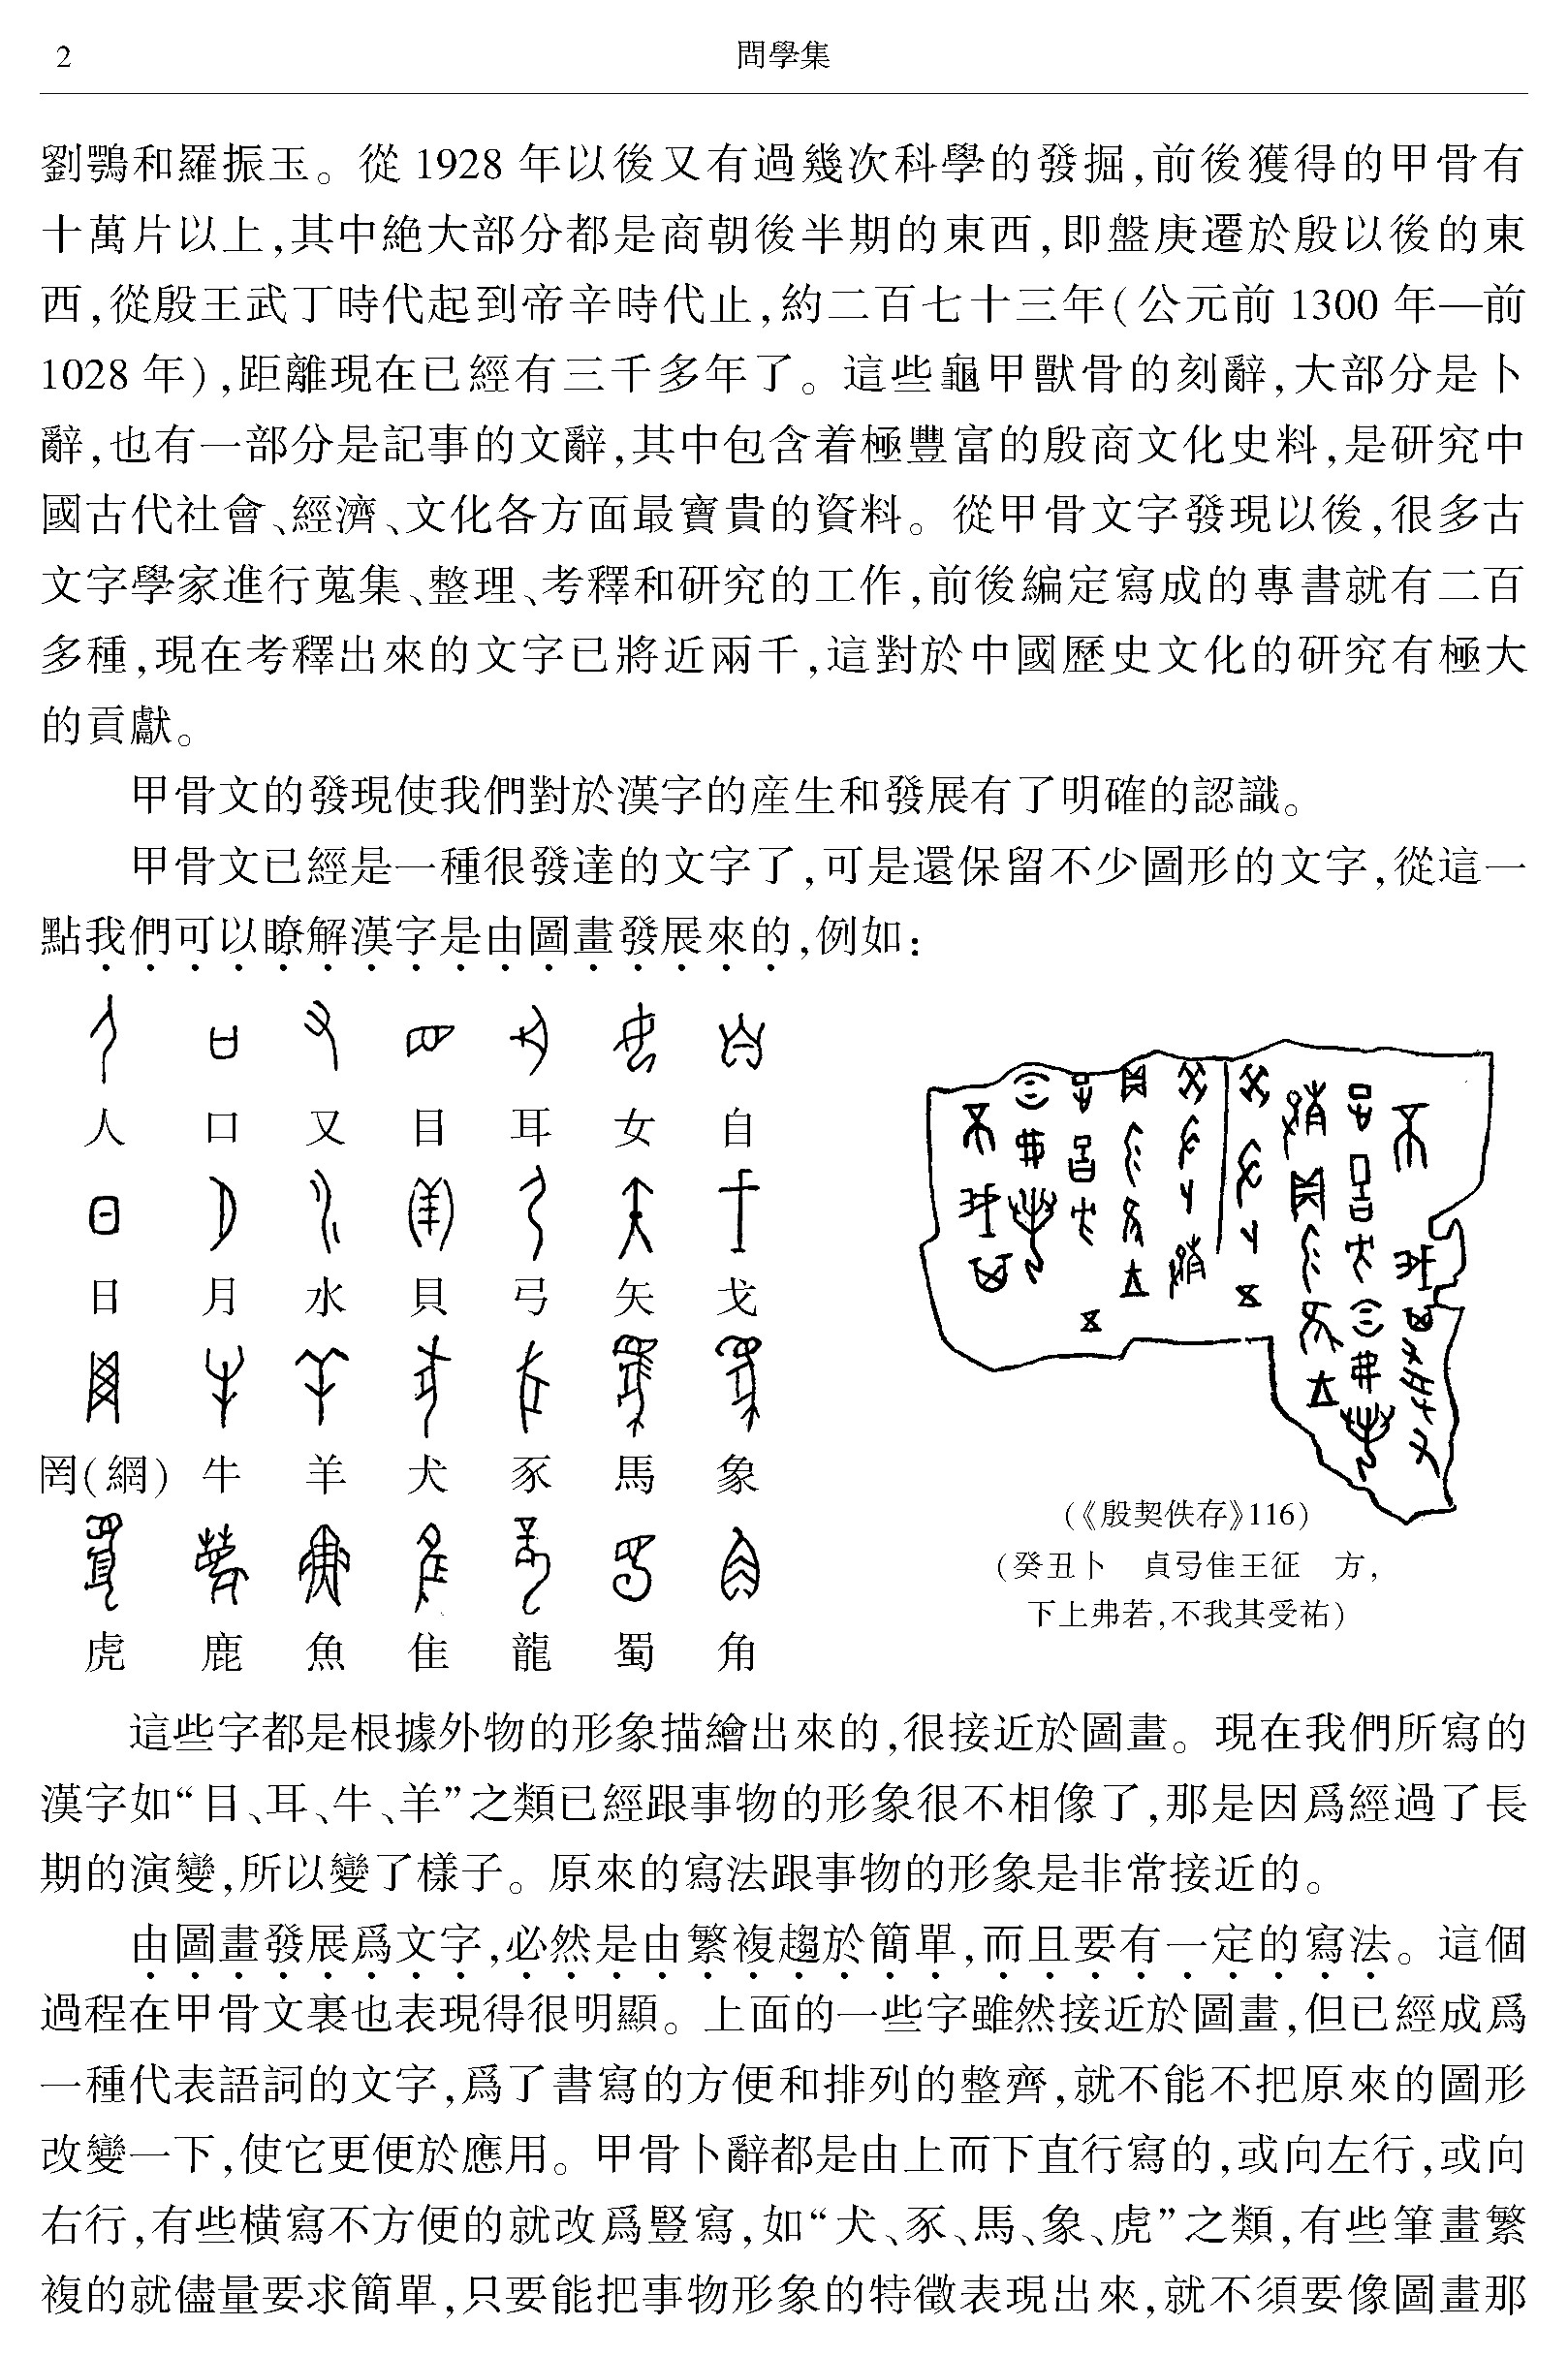 2
問學集
劉鶚和羅振玉。從 1928 年以後又有過幾次科學的發掘,前後獲得的甲骨有
十萬片以上,其中絶大部分都是商朝後半期的東西,即盤庚遷於殷以後的東
西,從殷王武丁時代起到帝辛時代止,約二百七十三年(公元前 1300 年—前
1028 年),距離現在已經有三千多年了。這些龜甲獸骨的刻辭,大部分是卜
辭,也有一部分是記事的文辭,其中包含着極豐富的殷商文化史料,是研究中
國古代社會、經濟、文化各方面最寶貴的資料。從甲骨文字發現以後,很多古
文字學家進行蒐集、整理、考釋和研究的工作,前後編定寫成的專書就有二百
多種,現在考釋出來的文字已將近兩千,這對於中國歷史文化的研究有極大
的貢獻。
甲骨文的發現使我們對於漢字的産生和發展有了明確的認識。
甲骨文已經是一種很發達的文字了,可是還保留不少圖形的文字,從這一
點我們可以瞭解漢字是由圖畫發展來的,例如:
人 口 又 目 耳 女 自
日 月 水 貝 弓 矢 戈
罔(網) 牛 羊 犬 豕 馬 象
虎 鹿 魚 隹 龍 蜀 角
(《殷契佚存》116)
(癸丑卜 貞弜隹王征 方,
下上弗若,不我其受祐)
這些字都是根據外物的形象描繪出來的,很接近於圖畫。現在我們所寫的
漢字如“目、耳、牛、羊”之類已經跟事物的形象很不相像了,那是因爲經過了長
期的演變,所以變了樣子。原來的寫法跟事物的形象是非常接近的。
由圖畫發展爲文字,必然是由繁複趨於簡單,而且要有一定的寫法。這個
過程在甲骨文裏也表現得很明顯。上面的一些字雖然接近於圖畫,但已經成爲
一種代表語詞的文字,爲了書寫的方便和排列的整齊,就不能不把原來的圖形
改變一下,使它更便於應用。甲骨卜辭都是由上而下直行寫的,或向左行,或向
右行,有些橫寫不方便的就改爲豎寫,如“犬、豕、馬、象、虎”之類,有些筆畫繁
複的就儘量要求簡單,只要能把事物形象的特徵表現出來,就不須要像圖畫那